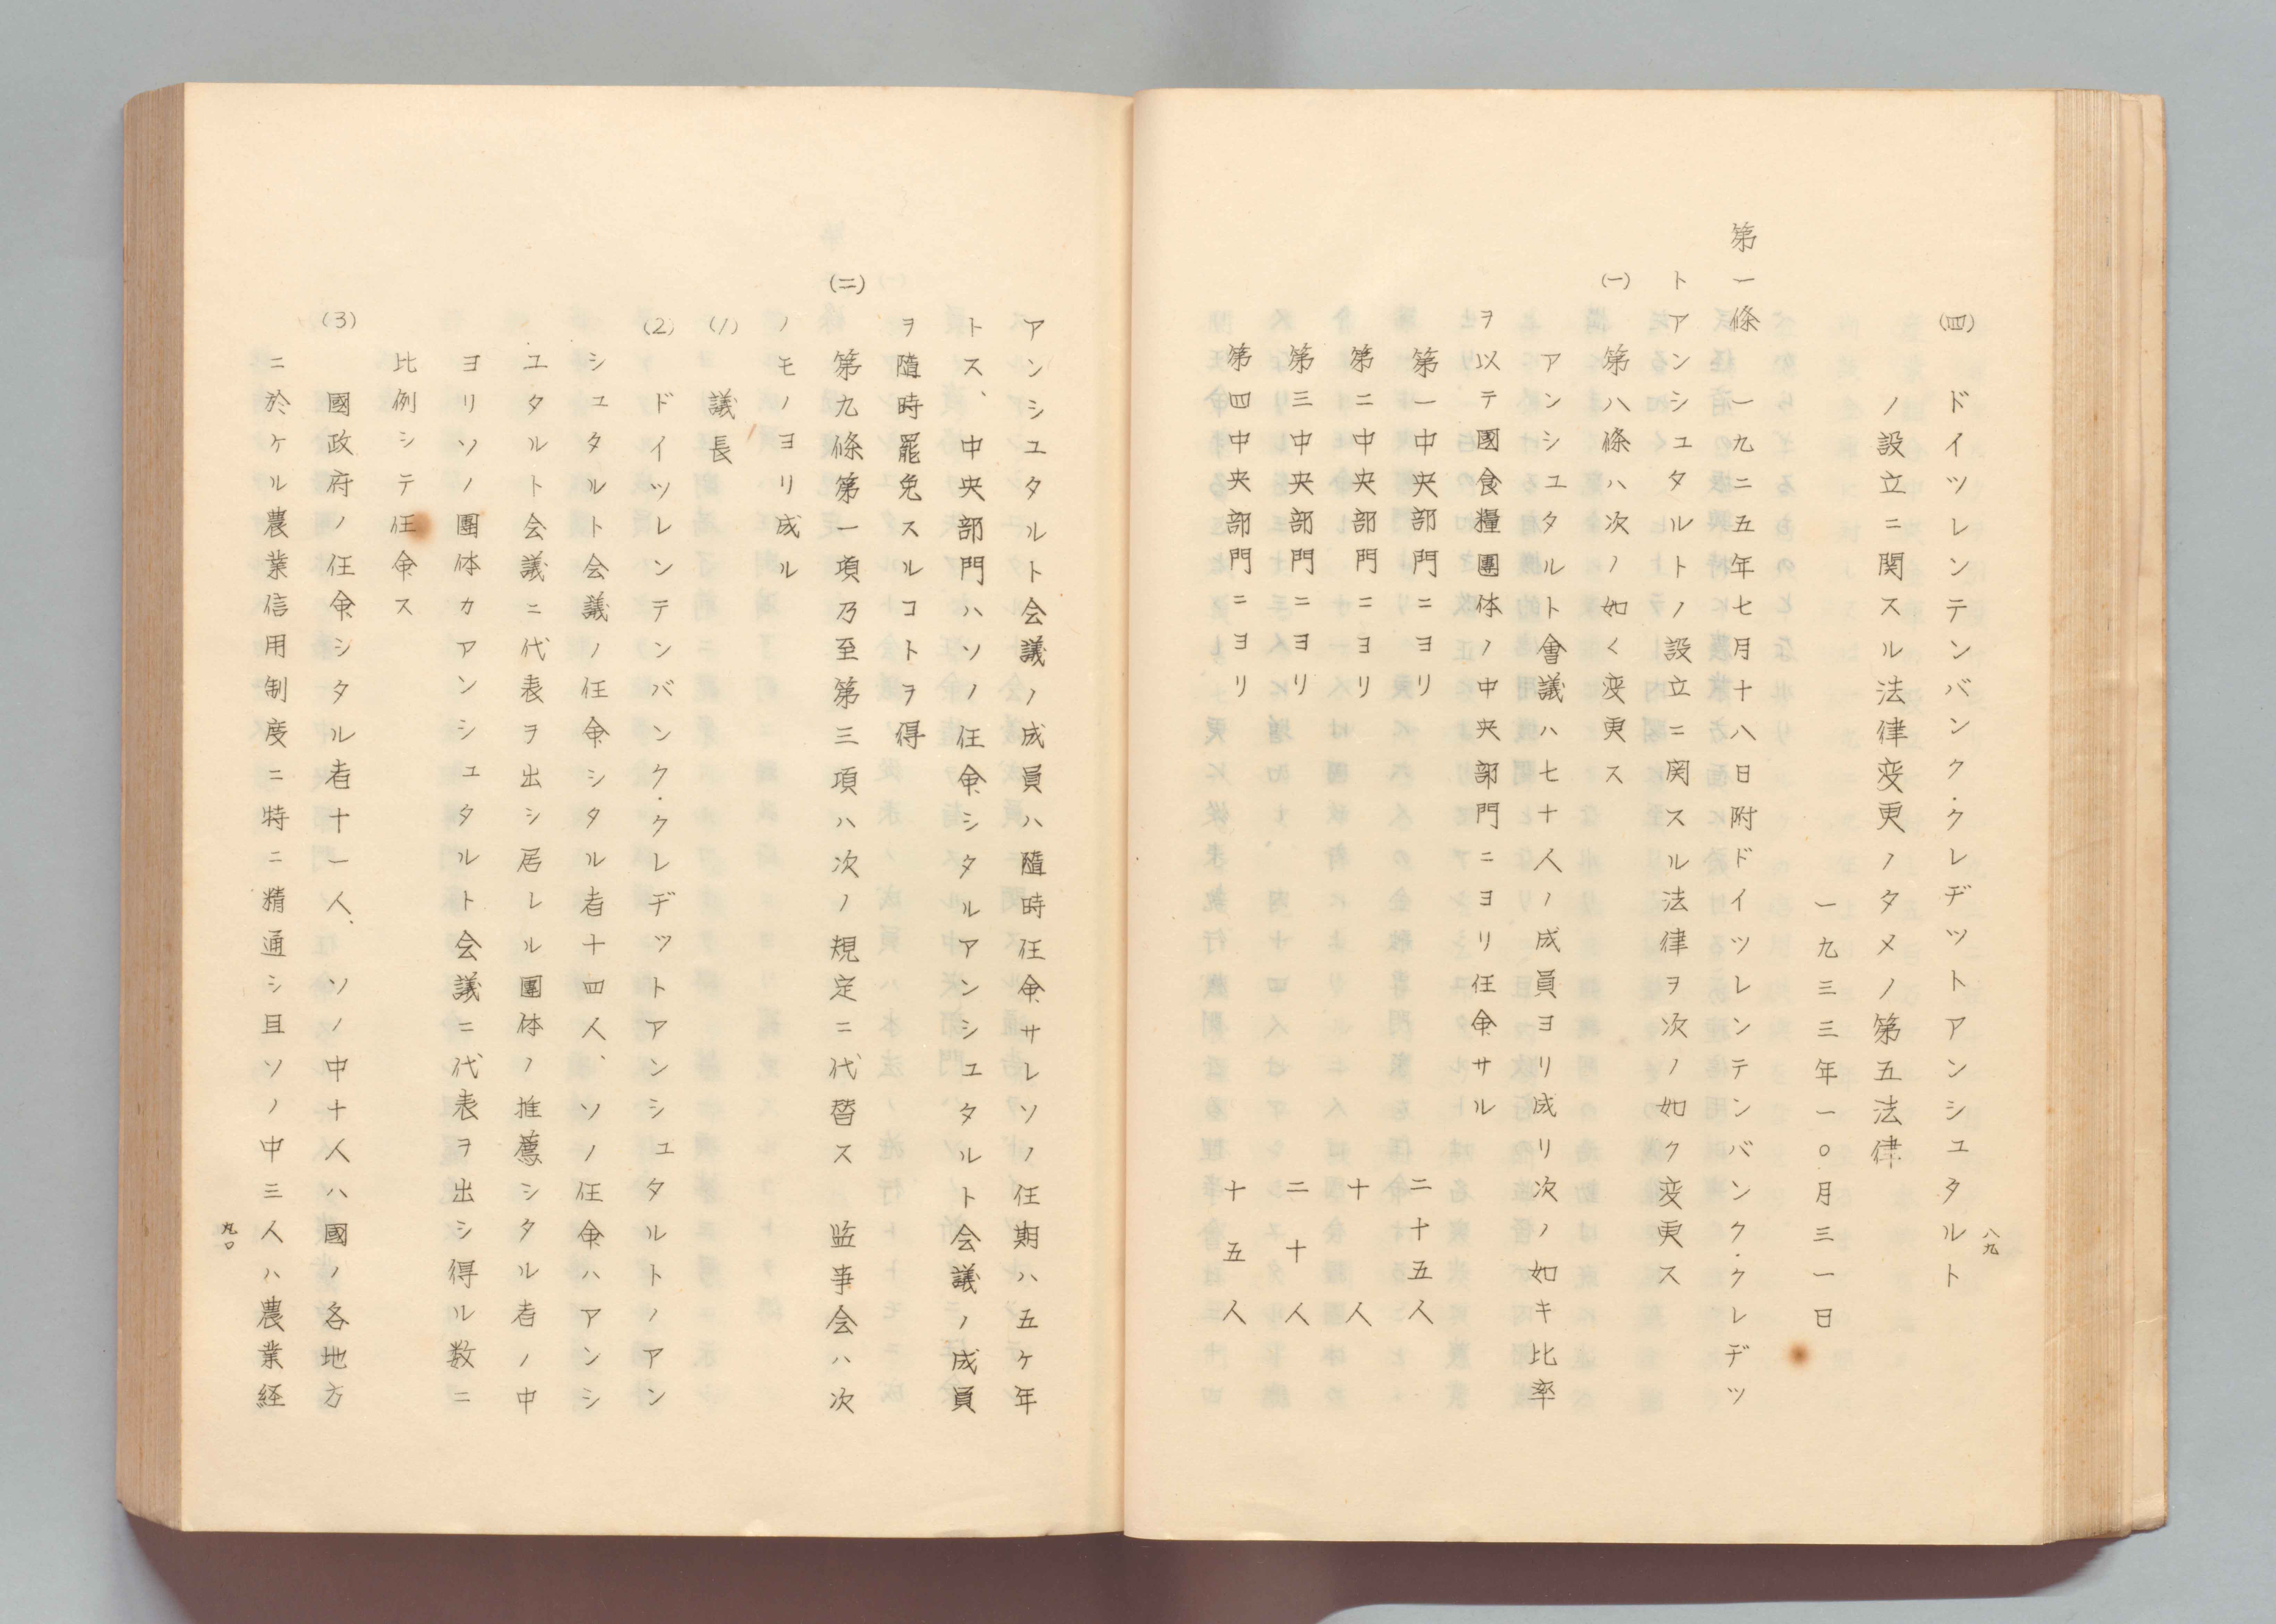 八九
(四)　ドイツレンテンバンク・クレヂツトアンシユタルト
ノ設立ニ関スル法律変更ノタメノ第五法律
一九三三年一〇月三一日
第一條　一九二五年七月十八日附ドイツレンテンバンク・クレヂツ
トアンシユタルトノ設立ニ関スル法律ヲ次ノ如ク変更ス
(一)　第八條ハ次ノ如く変更ス
アンシユタルト會議ハ七十人ノ成員ヨリ成リ次ノ如キ比率
ヲ以テ國食糧團体ノ中央部門ニヨリ任命サル
第一中央部門ニヨリ　二十五人
第二中央部門ニヨリ　十人
第三中央部門ニヨリ　二十人
第四中央部門ニヨリ　十五人
アンシユタルト会議ノ成員ハ隨時任命サレソノ任期ハ五ケ年
トス、中央部門ハソノ任命シタルアンシユタルト会議ノ成員
ヲ隨時罷免スルコトヲ得
(二)　第九條第一項乃至第三項ハ次ノ規定ニ代替ス　監事会ハ次
ノモノヨリ成ル
(1)　議長
(2)　ドイツレンテンバンク・クレヂツトアンシユタルトノアン
シユタルト会議ノ任命シタル者十四人、ソノ任命ハアンシ
ユタルト会議ニ代表ヲ出シ居レル團体ノ推薦シタル者ノ中
ヨリソノ團体カアンシユタルト会議ニ代表ヲ出シ得ル数ニ
比例シテ任命ス
(3)　國政府ノ任命シタル者十一人、ソノ中十人ハ國ノ各地方
ニ於ケル農業信用制度ニ特ニ精通シ且ソノ中三人ハ農業経
九〇